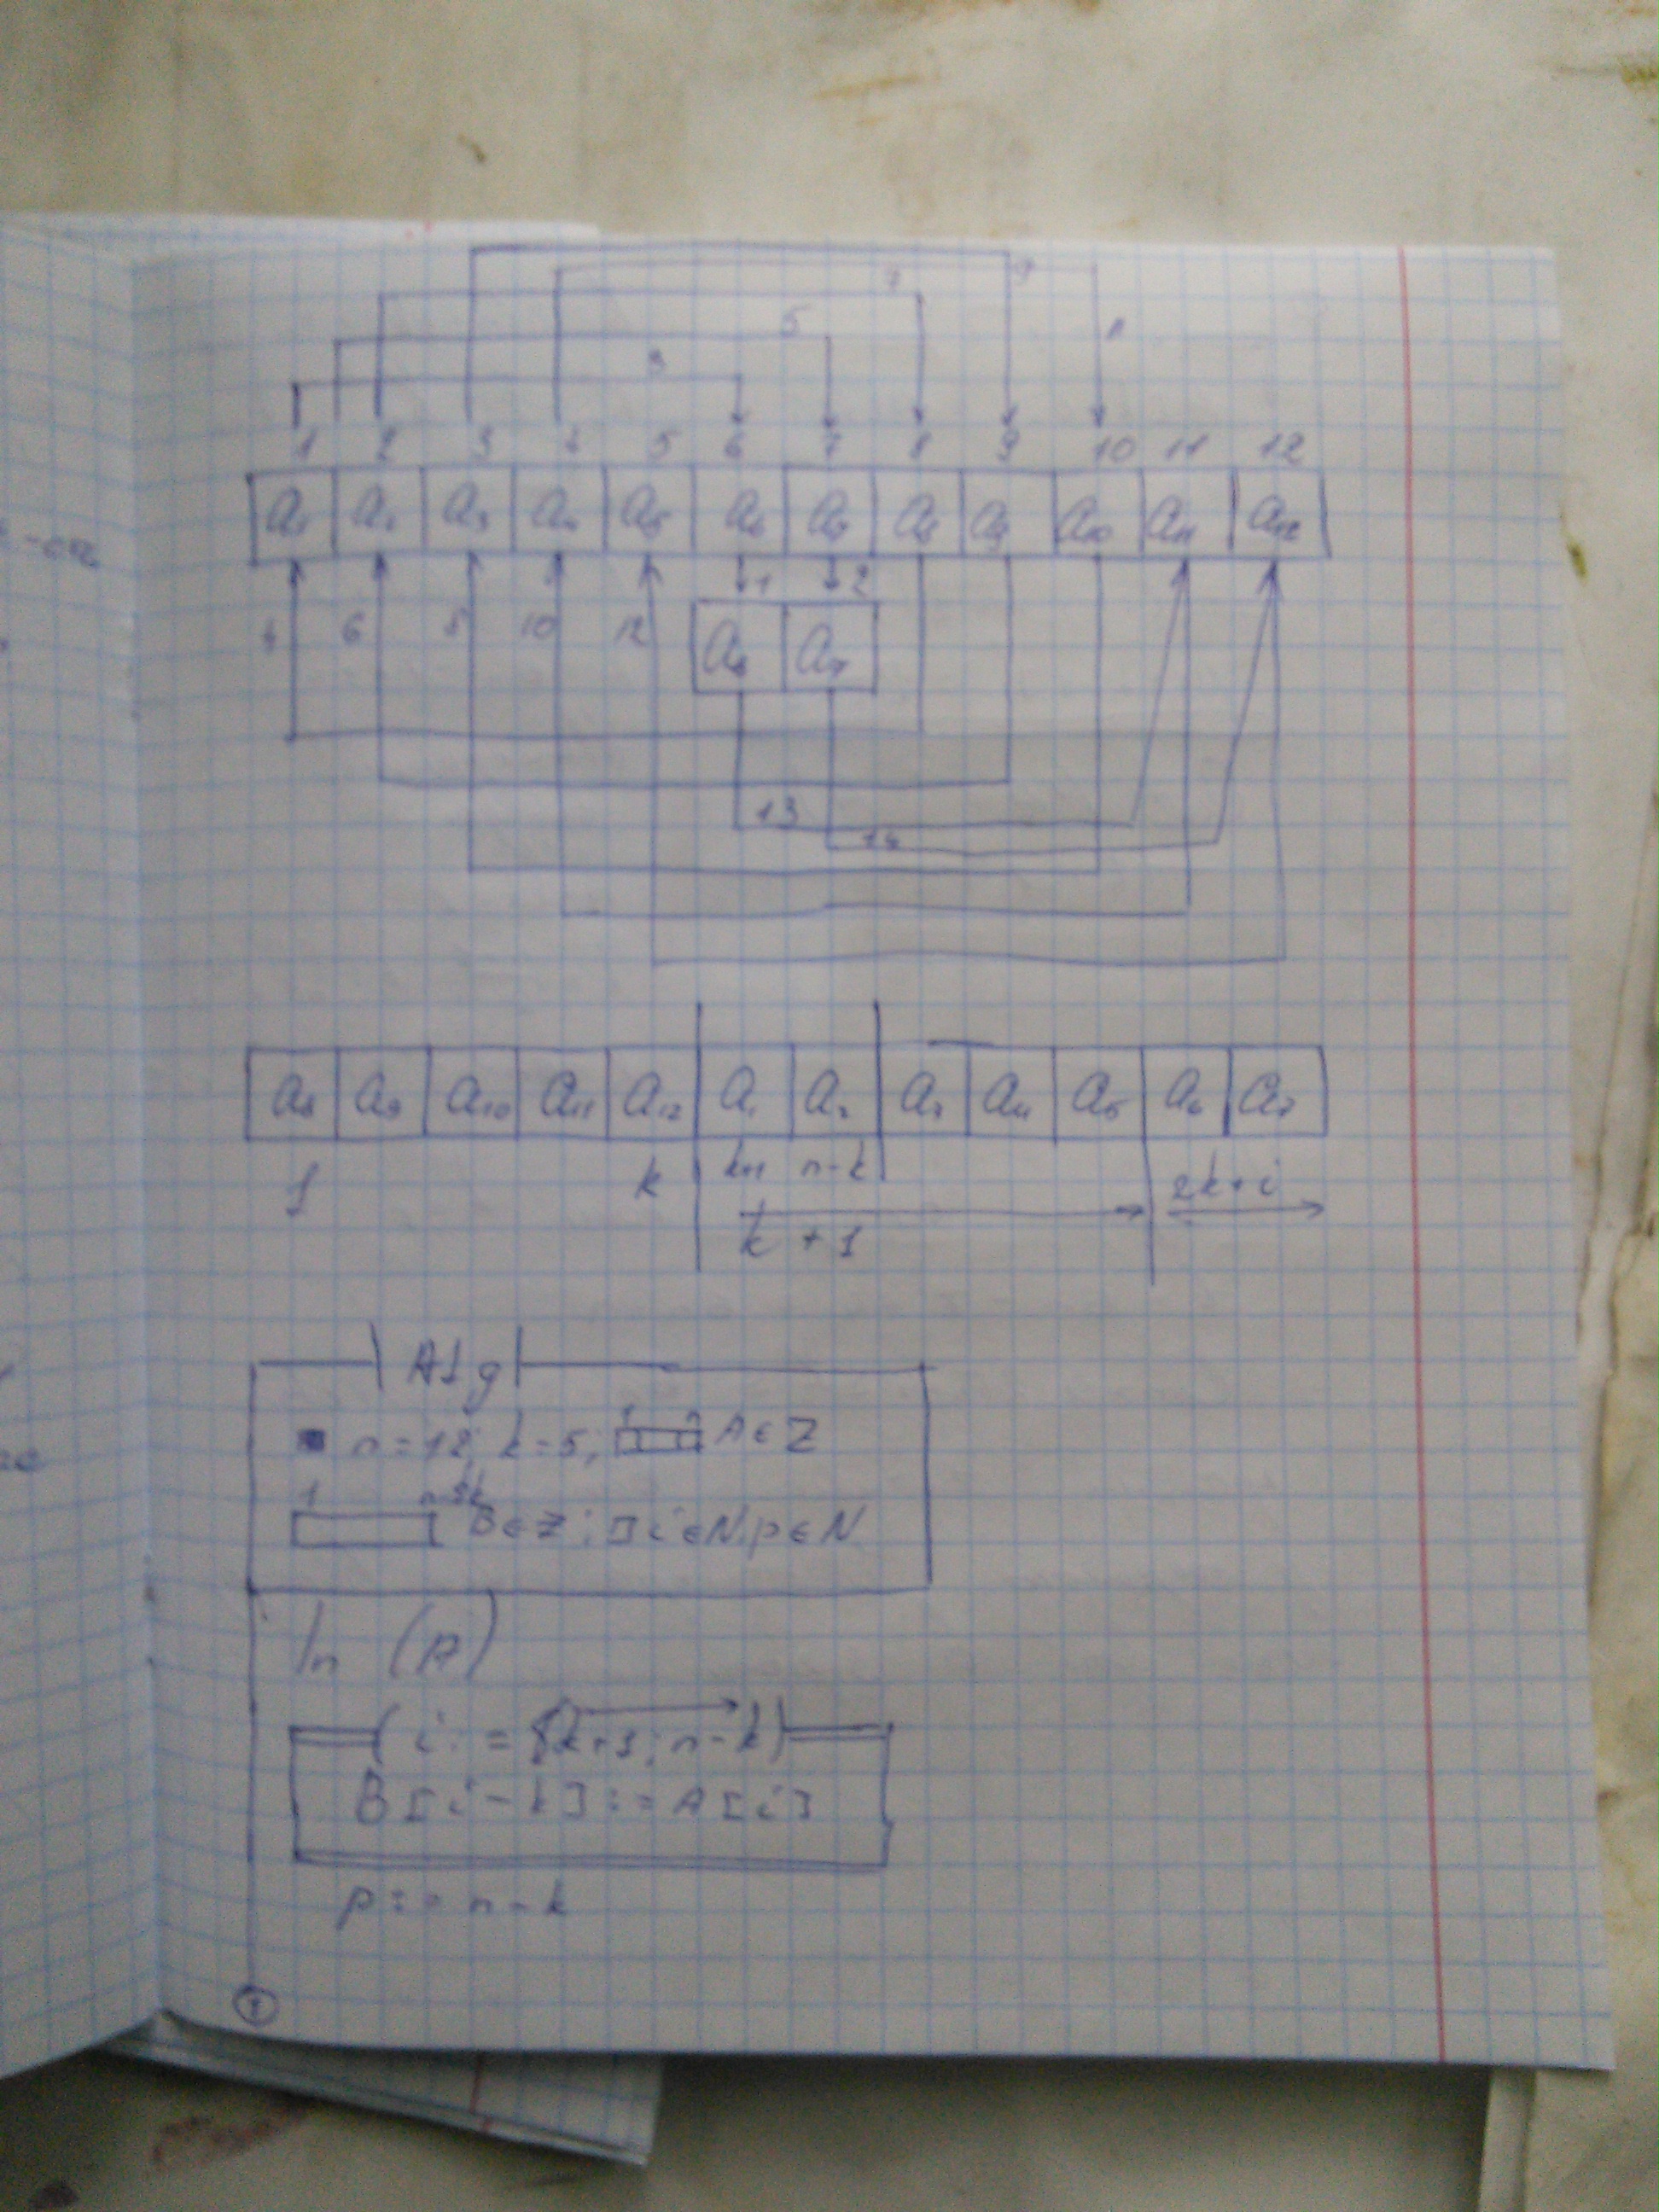 7 9
5 11
3
1 2 3 4 5 6 7 8 9 10 11 12
a₁ a₂ a₃ a₄ a₅ a₆ a₇ a₈ a₉ a₁₀ a₁₁ a₁₂
1 2
4 6 8 10 12
a₆ a₇
13
14
a₈ a₉ a₁₀ a₁₁ a₁₂ a₁ a₂ a₃ a₄ a₅ a₆ a₇
1 k k+1 n-k 2k+i
k+1
Alg
n=12; k=5; 1 n A∈Z
1 n-2k
B∈Z; □ i∈N, p∈N
In (A)
(i:=(k+1; n-k)
B[i-k]:=A[i]
p:=n-k
1